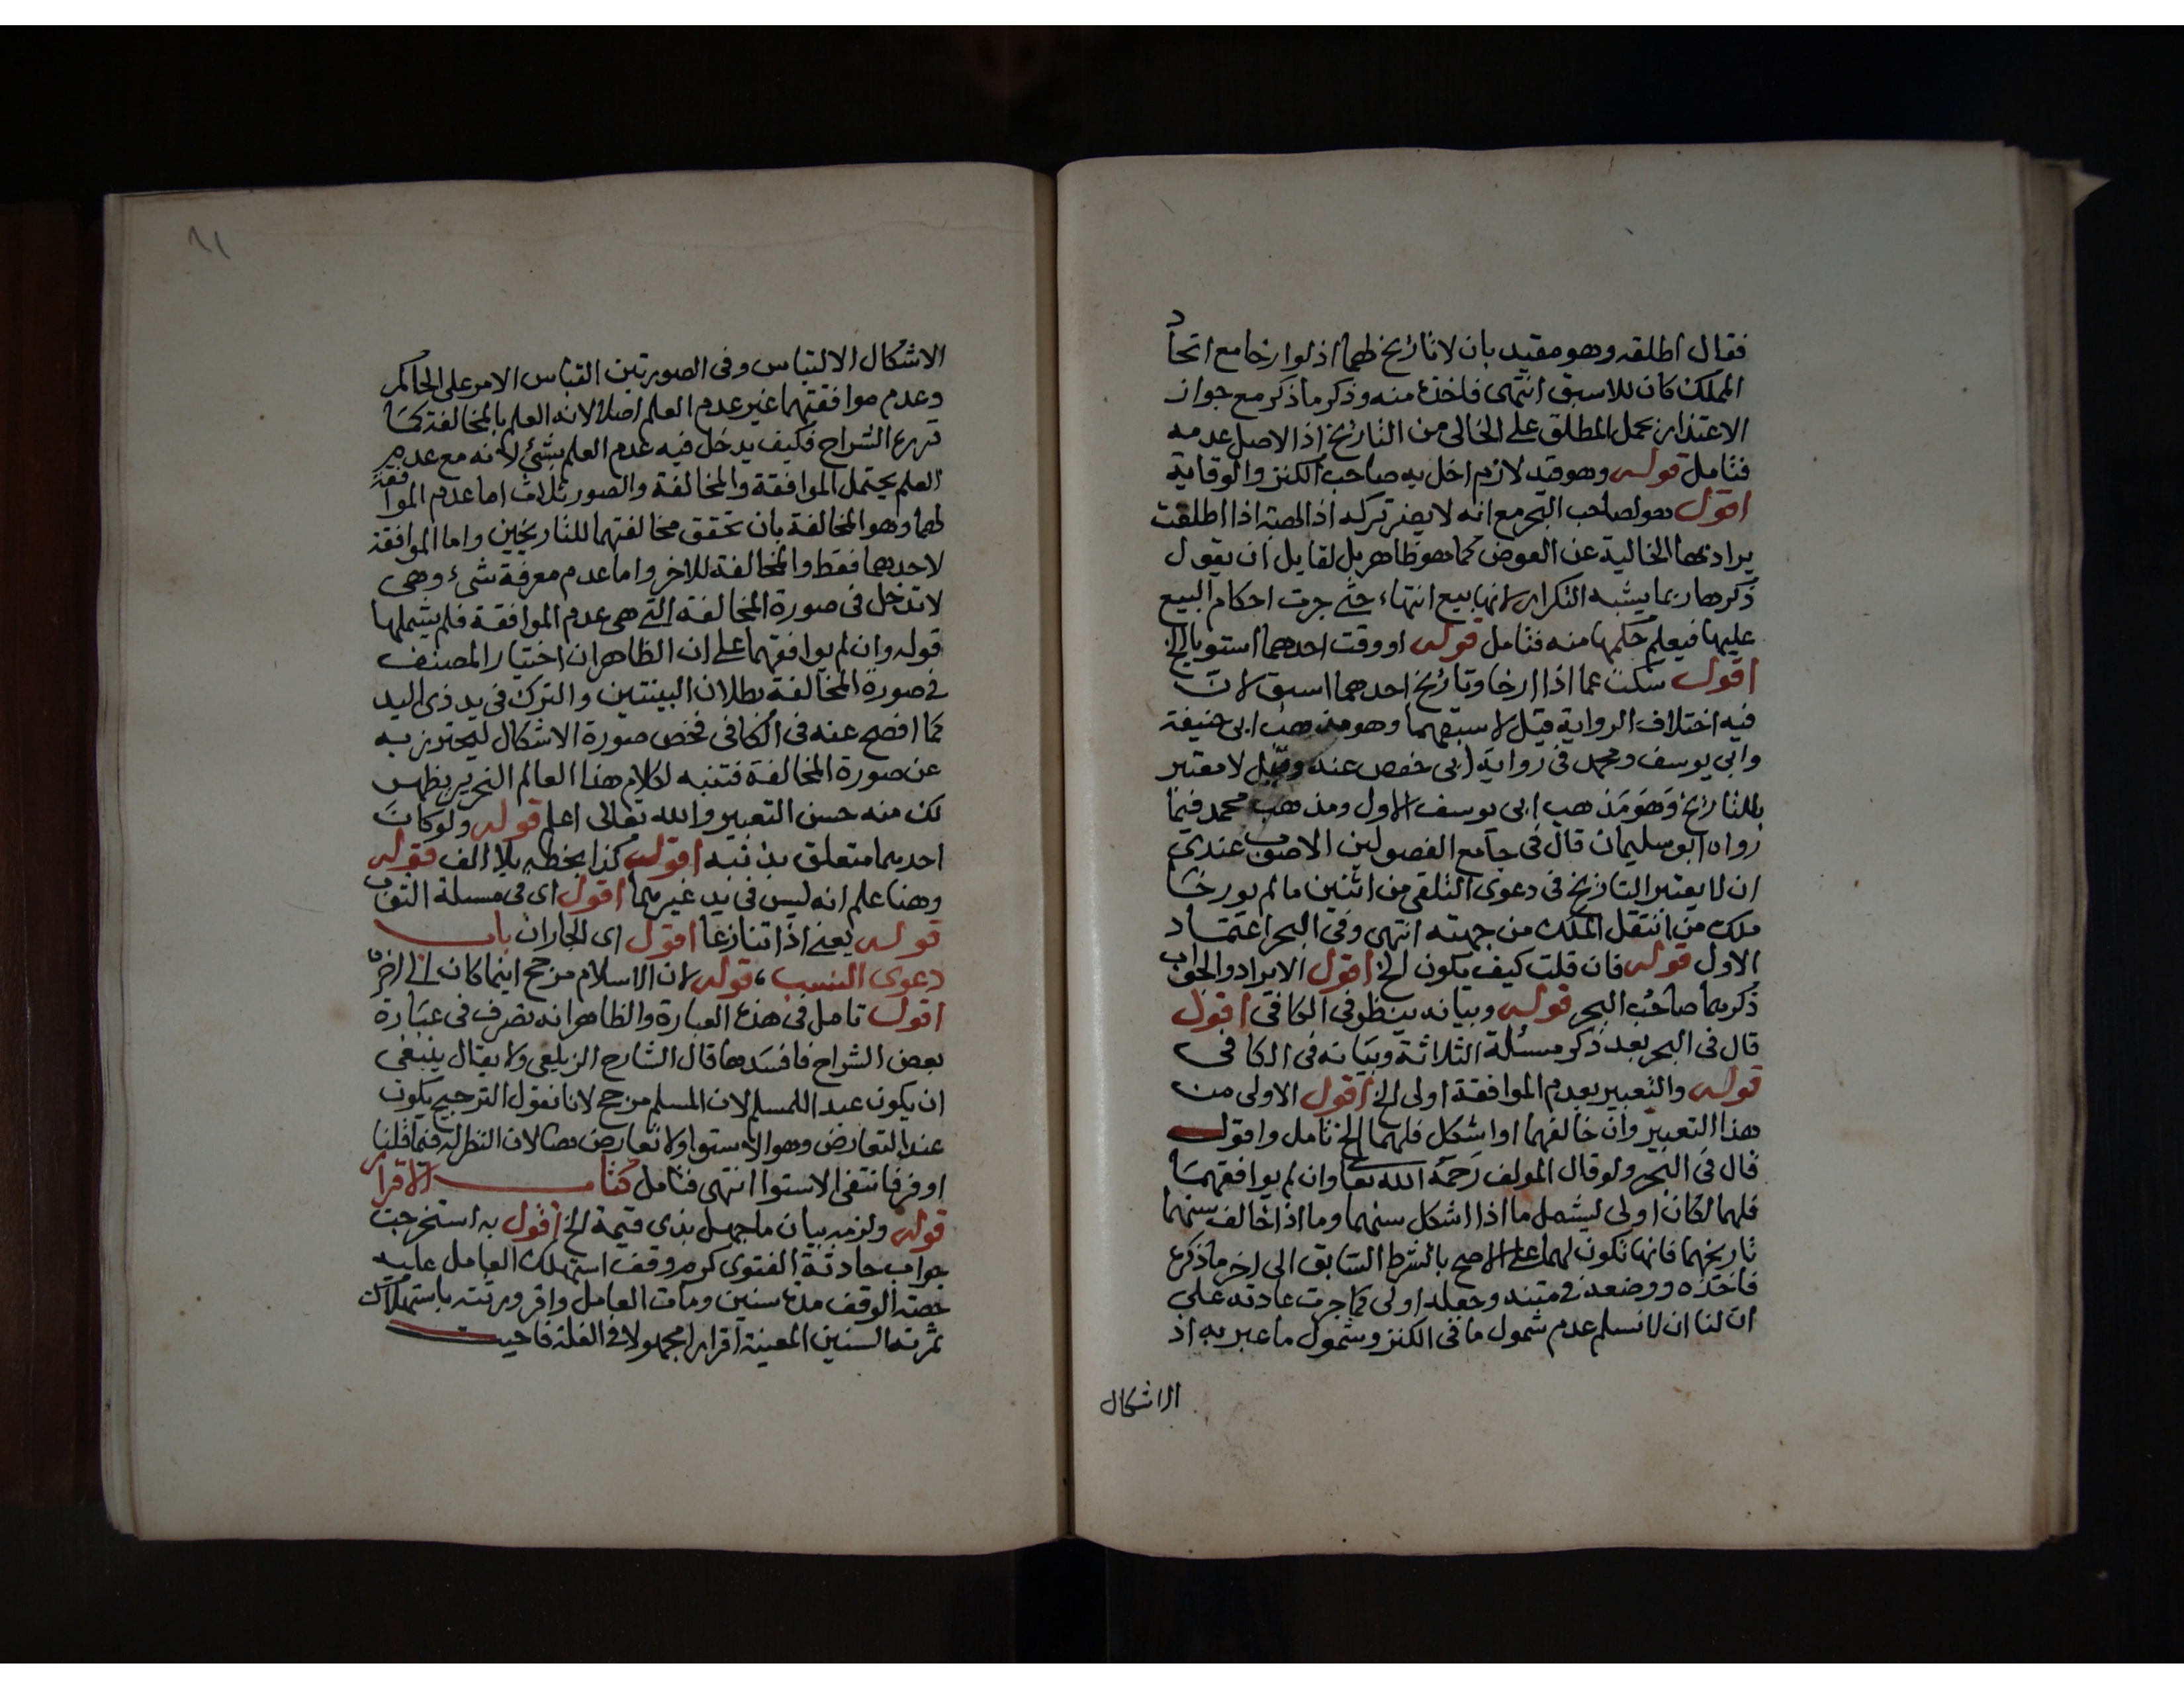 فقال اطلقه وهو مقيد بان لا تاريخ لهما اذ لو ارخا مع اتحاد
الملك كان للاسبق انتهى فاخذه منه وذكر ما ذكر مع جواز
الاعتذار بحمل المطلق على الخالى من التاريخ اذ الاصل عدمه
فتامل قوله وهو قيد لازم اخل به صاحب الكنز والوقاية
اقول هو لصاحب البحر مع انه لا يضر تركه اذ الهبة اذا اطلقت
يراد بها الخالية عن العوض كما هو ظاهر بل لقايل ان يقول
ذكرها ربما يشبه التكرار لانها بيع انتهاء حتى جرت احكام البيع
عليها فيعلم حكمها منه فتامل قوله او وقت احدهما استويا الخ
اقول سكت عما اذا ارخا وتاريخ احدهما اسبق لان
فيه اختلاف الرواية قيل لاسبقهما وهو مذهب ابى حنيفة
وابى يوسف ومحمد فى رواية ابى حفص عنه وقيل لا معتبر
بالتاريخ وهو مذهب ابى يوسف الاول ومذهب محمد فيما
رواه ابو سليمان قال فى جامع الفصولين الاصوب عندى
ان لا يعتبر التاريخ فى دعوى التلقى من اثنين ما لم يورخا
ملك من انتقل الملك من جهته انتهى وفى البحر اعتماد
الاول قوله فان قلت كيف يكون الخ اقول الايراد والجواب
ذكرهما صاحب البحر قوله وبيانه ينظر فى الكافى اقول
قال فى البحر بعد ذكر مسئلة الثلاثة وبيانه فى الكافى
قوله والتعبير بعدم الموافقة اولى الخ اقول الاولى من
هذا التعبير وان خالفهما او اشكل فلهما الخ تامل واقول
قال فى البحر ولو قال المولف رحمه الله تعالى وان لم يوافقهما
فلهما لكان اولى ليشمل ما اذا اشكل سنهما وما اذا خالف سنهما
تاريخهما فانها تكون لهما على الاصح بالشرط السابق الى اخر ما ذكره
فاخذه ووضعه فى متنه وجعله اولى كما جرت عادته على
ان لنا ان لا نسلم عدم شمول ما فى الكنز وشمول ما عبر به اذ
الاشكال
الاشكال الالتباس وفى الصورتين التباس الامر على الحاكم
وعدم موافقتهما غير عدم العلم اصلا لانه العلم بالمخالفة كما
قرره الشراح فكيف يدخل فيه عدم العلم بشئ لانه مع عدم
العلم يحتمل الموافقة والمخالفة والصور ثلاث اما عدم الموافقة
لهما وهو المخالفة بان تحقق مخالفتهما للتاريخين واما الموافقة
لاحدهما فقط والمخالفة للاخر واما عدم معرفة شىء وهى
لا تدخل فى صورة المخالفة التى هى عدم الموافقة فلم يشملها
قوله وان لم يوافقهما على ان الظاهر ان اختيار المصنف
فى صورة المخالفة بطلان البينتين والترك فى يد ذى اليد
كما افصح عنه فى الكافى فخص صورة الاشكال ليحترز به
عن صورة المخالفة فتنبه لكلام هذا العالم النحرير يظهر
لك منه حسن التعبير والله تعالى اعلم قوله ولو كان
احدهما متعلق بذنبه اقول كذا بخطه بلا الف قوله
وهنا علم انه ليس فى يد غيرهما اقول اى فى مسئلة الثوب
قوله يعنى اذا تنازعا اقول اى الجاران باب
دعوى النسب قوله لان الاسلام مرجح اينما كان الى اخره
اقول تامل فى هذه العبارة والظاهر انه تصرف فى عبارة
بعض الشراح فافسدها قال الشارح الزيلعى ولا يقال ينبغى
ان يكون عبدا للمسلم لان المسلم مرجح لانا نقول الترجيح يكون
عند التعارض وهو الاستوا ولا تعارض هنا لان النظر له فيما قلنا
اوفر فانتفى الاستوا انتهى فتامل كتاب الاقرار
قوله ولزمه بيان ما جهل بذى قيمة الخ اقول به استخرجت
جواب حادثة الفتوى كرم وقف استهلك العامل عليه
حصة الوقف مدة سنين ومات العامل واقر ورثته باستهلاك
ثمرته السنين المعينة اقرارا مجهولا فى الغلة فاجيب